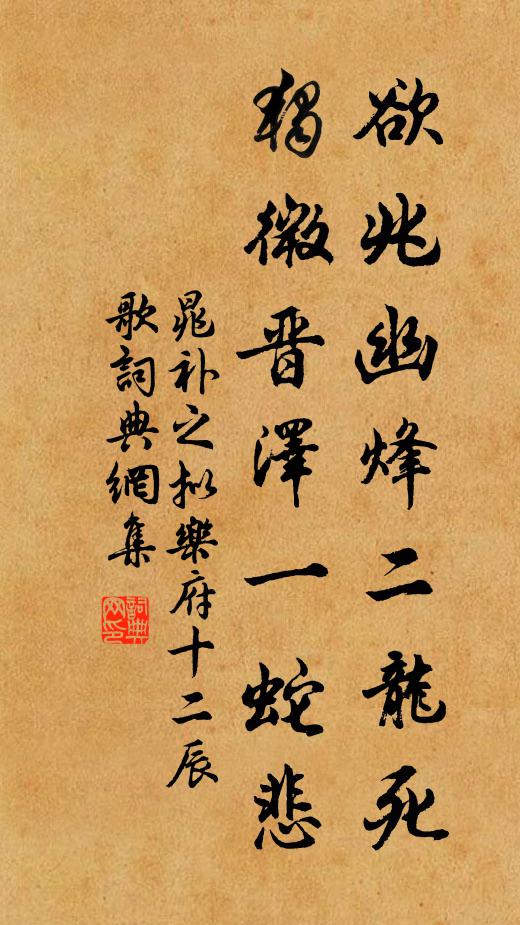 欲兆幽烽二龍死
獨微晋澤一蛇悲
晁補之擬樂府十二辰
歌詞典網集
詞典網印